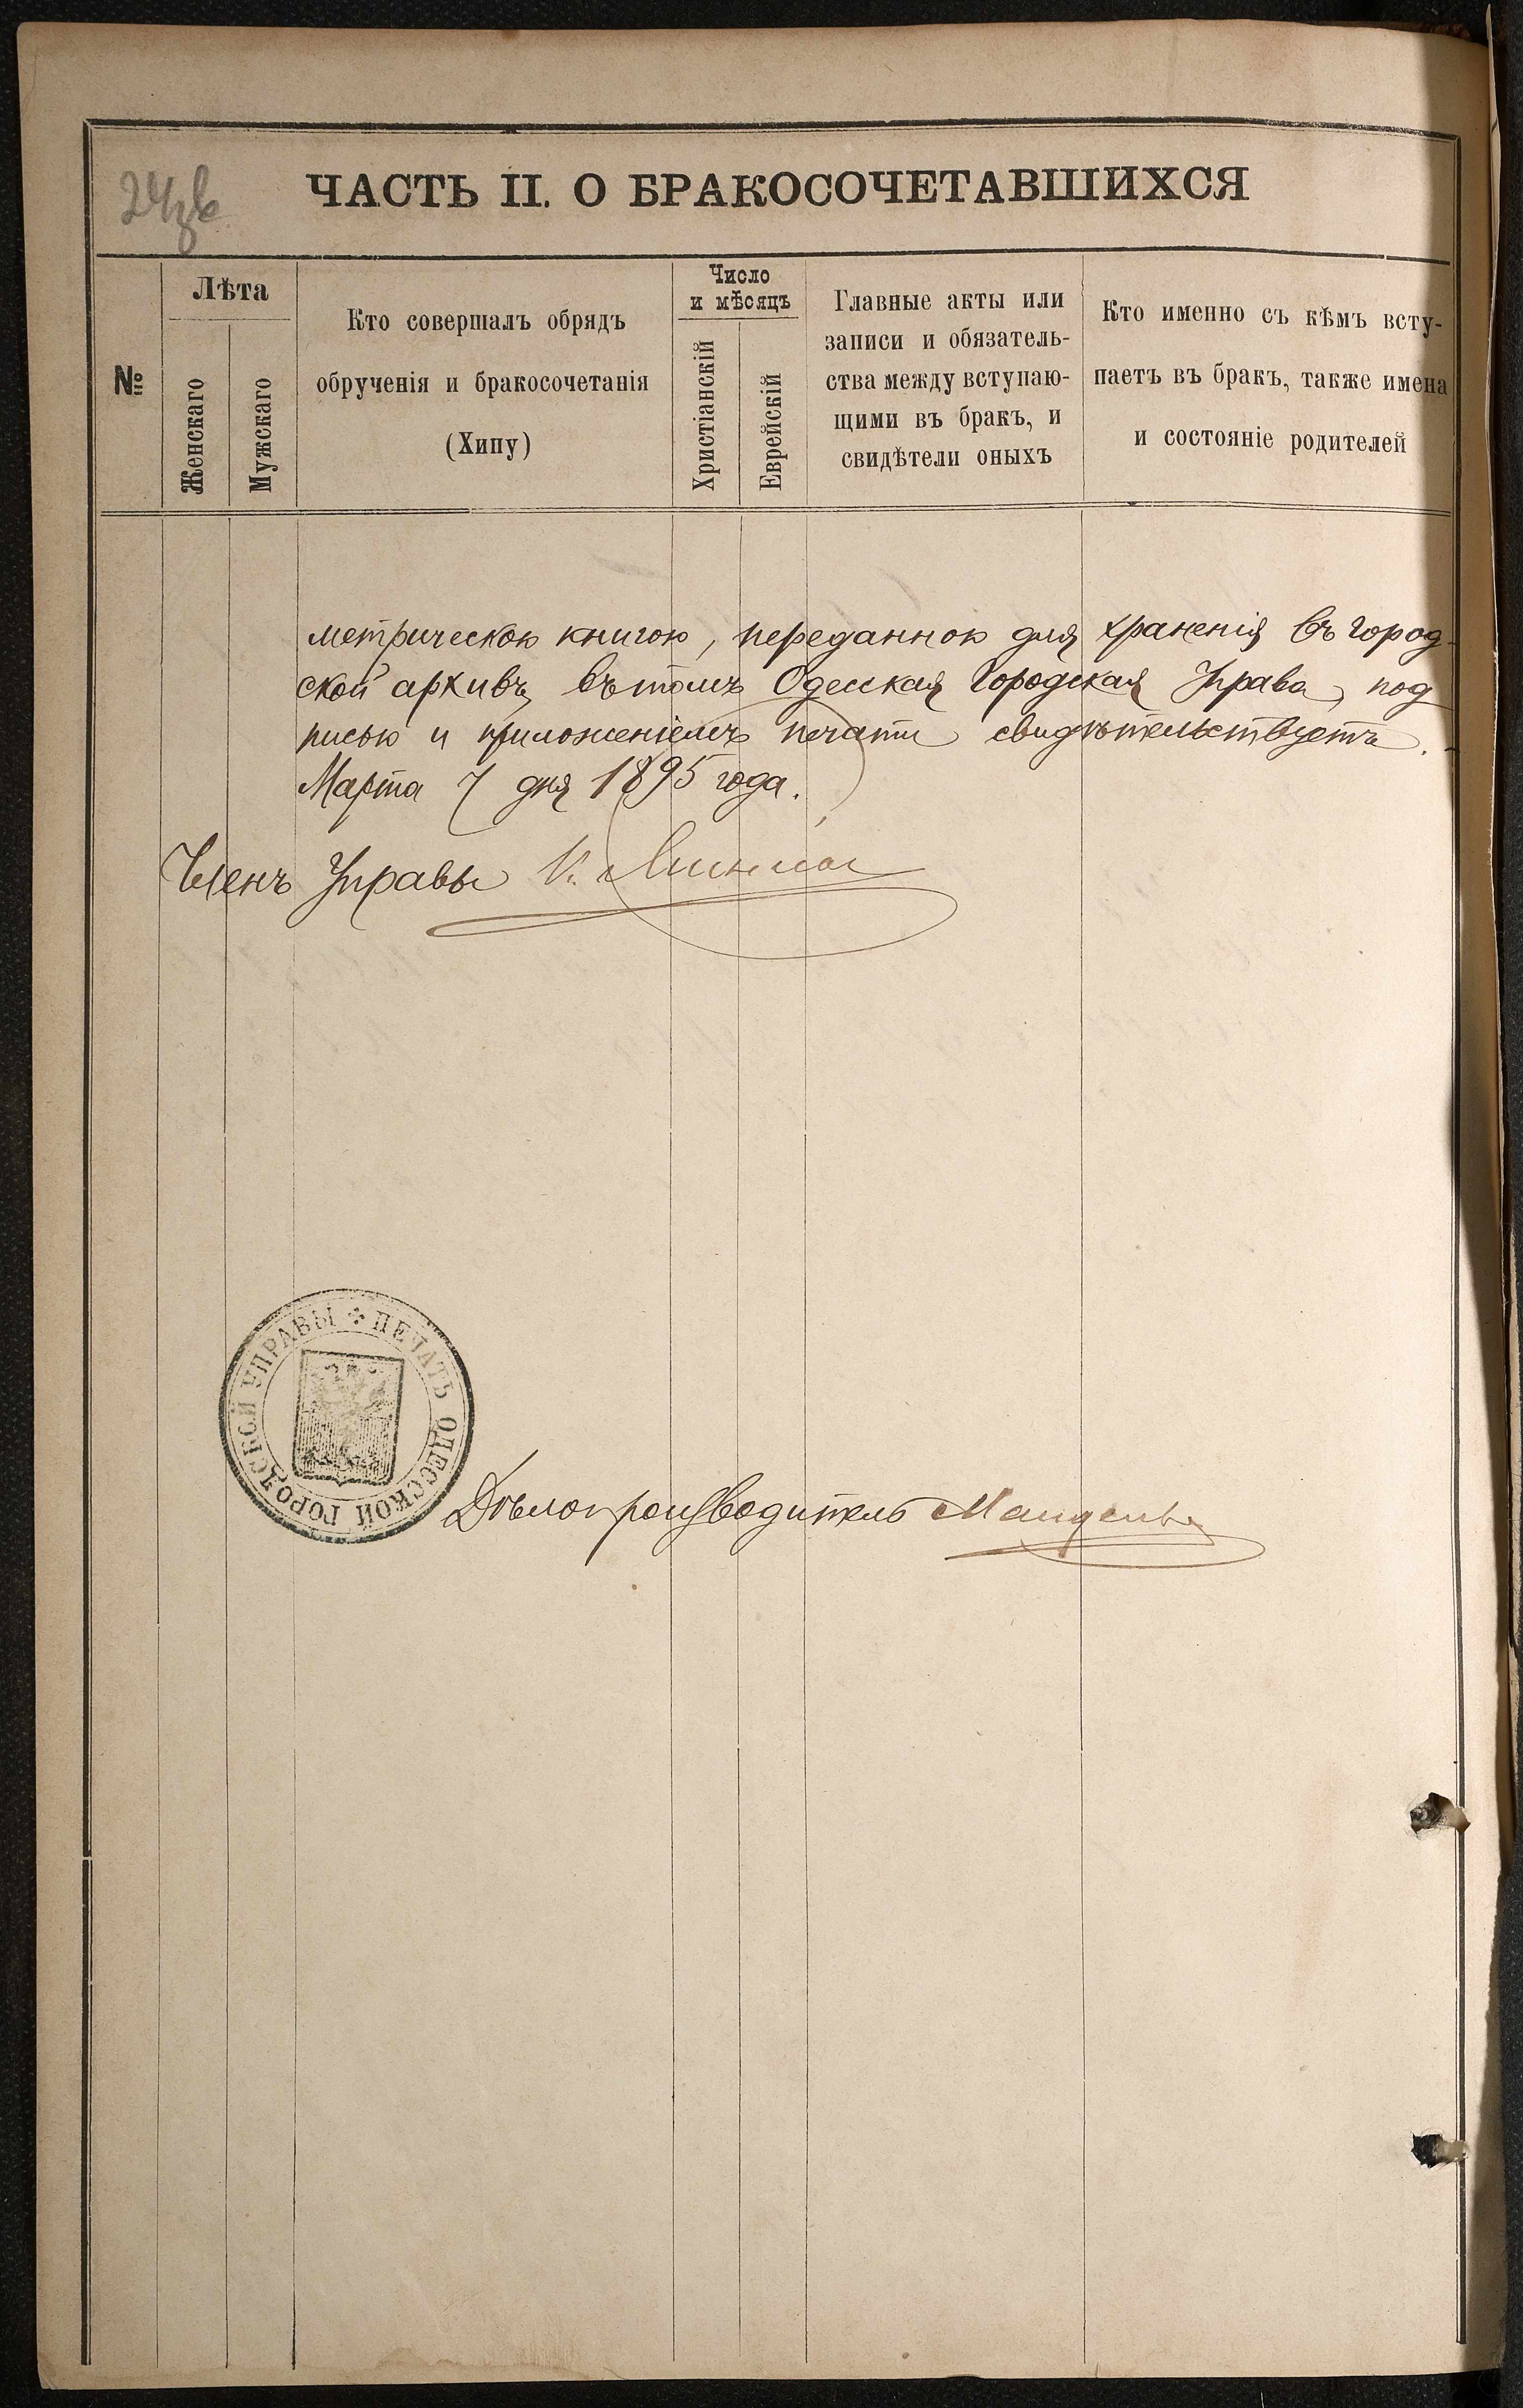 ЧАСТЬ II. О БРАКОСОЧЕТАВШИХСЯ
№
Лѣта
Женскаго
Мужскаго
Кто совершалъ обрядъ
обрученія и бракосочетанія
(Хипу)
Число
и мѣсяцъ
Христіанскій
Еврейскій
Главные акты или
записи и обязатель-
ства между вступаю-
щими въ бракъ, и
свидѣтели оныхъ
Кто именно съ кѣмъ всту-
паетъ въ бракъ, также имена
и состояніе родителей
метрическою книгою, переданною для храненія въ город-
ской архивъ, въ томъ Одесская Городская Управа, под
писью и приложеніемъ печати свидѣтельствуетъ.
Марта 7 дня 1895 года.
Членъ Управы
ПЕЧАТЬ ОДЕССКОЙ ГОРОДСКОЙ УПРАВЫ
Дѣлопроизводитель